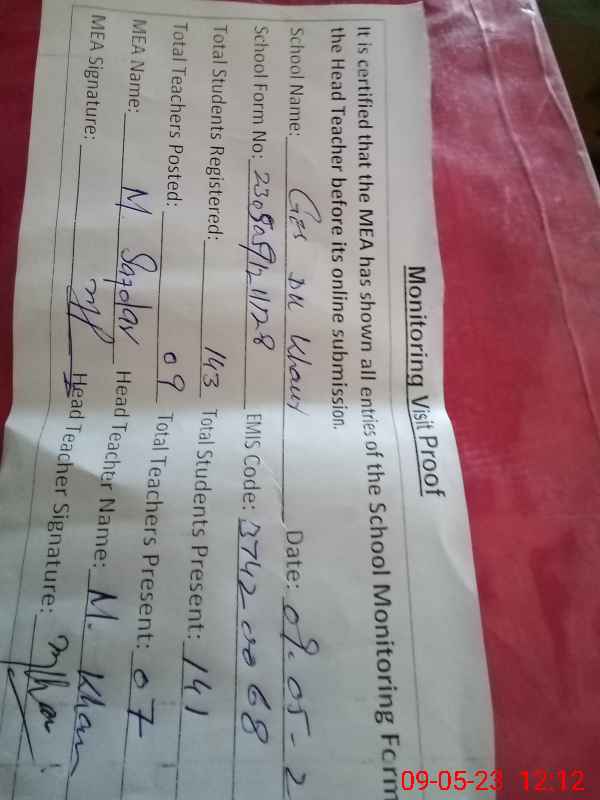 Monitoring Visit Proof
It is certified that the MEA has shown all entries of the School Monitoring Form
the Head Teacher before its online submission.
School Name: GES DK Date: 09.05-2
School Form No: EMIS Code: 37420068
Total Students Registered: 143 Total Students Present: 141
Total Teachers Posted: 09 Total Teachers Present: 07
MEA Name: M. Safdar Head Teacher Name: M. Khan
MEA Signature: Head Teacher Signature:
09-05-23 12:12